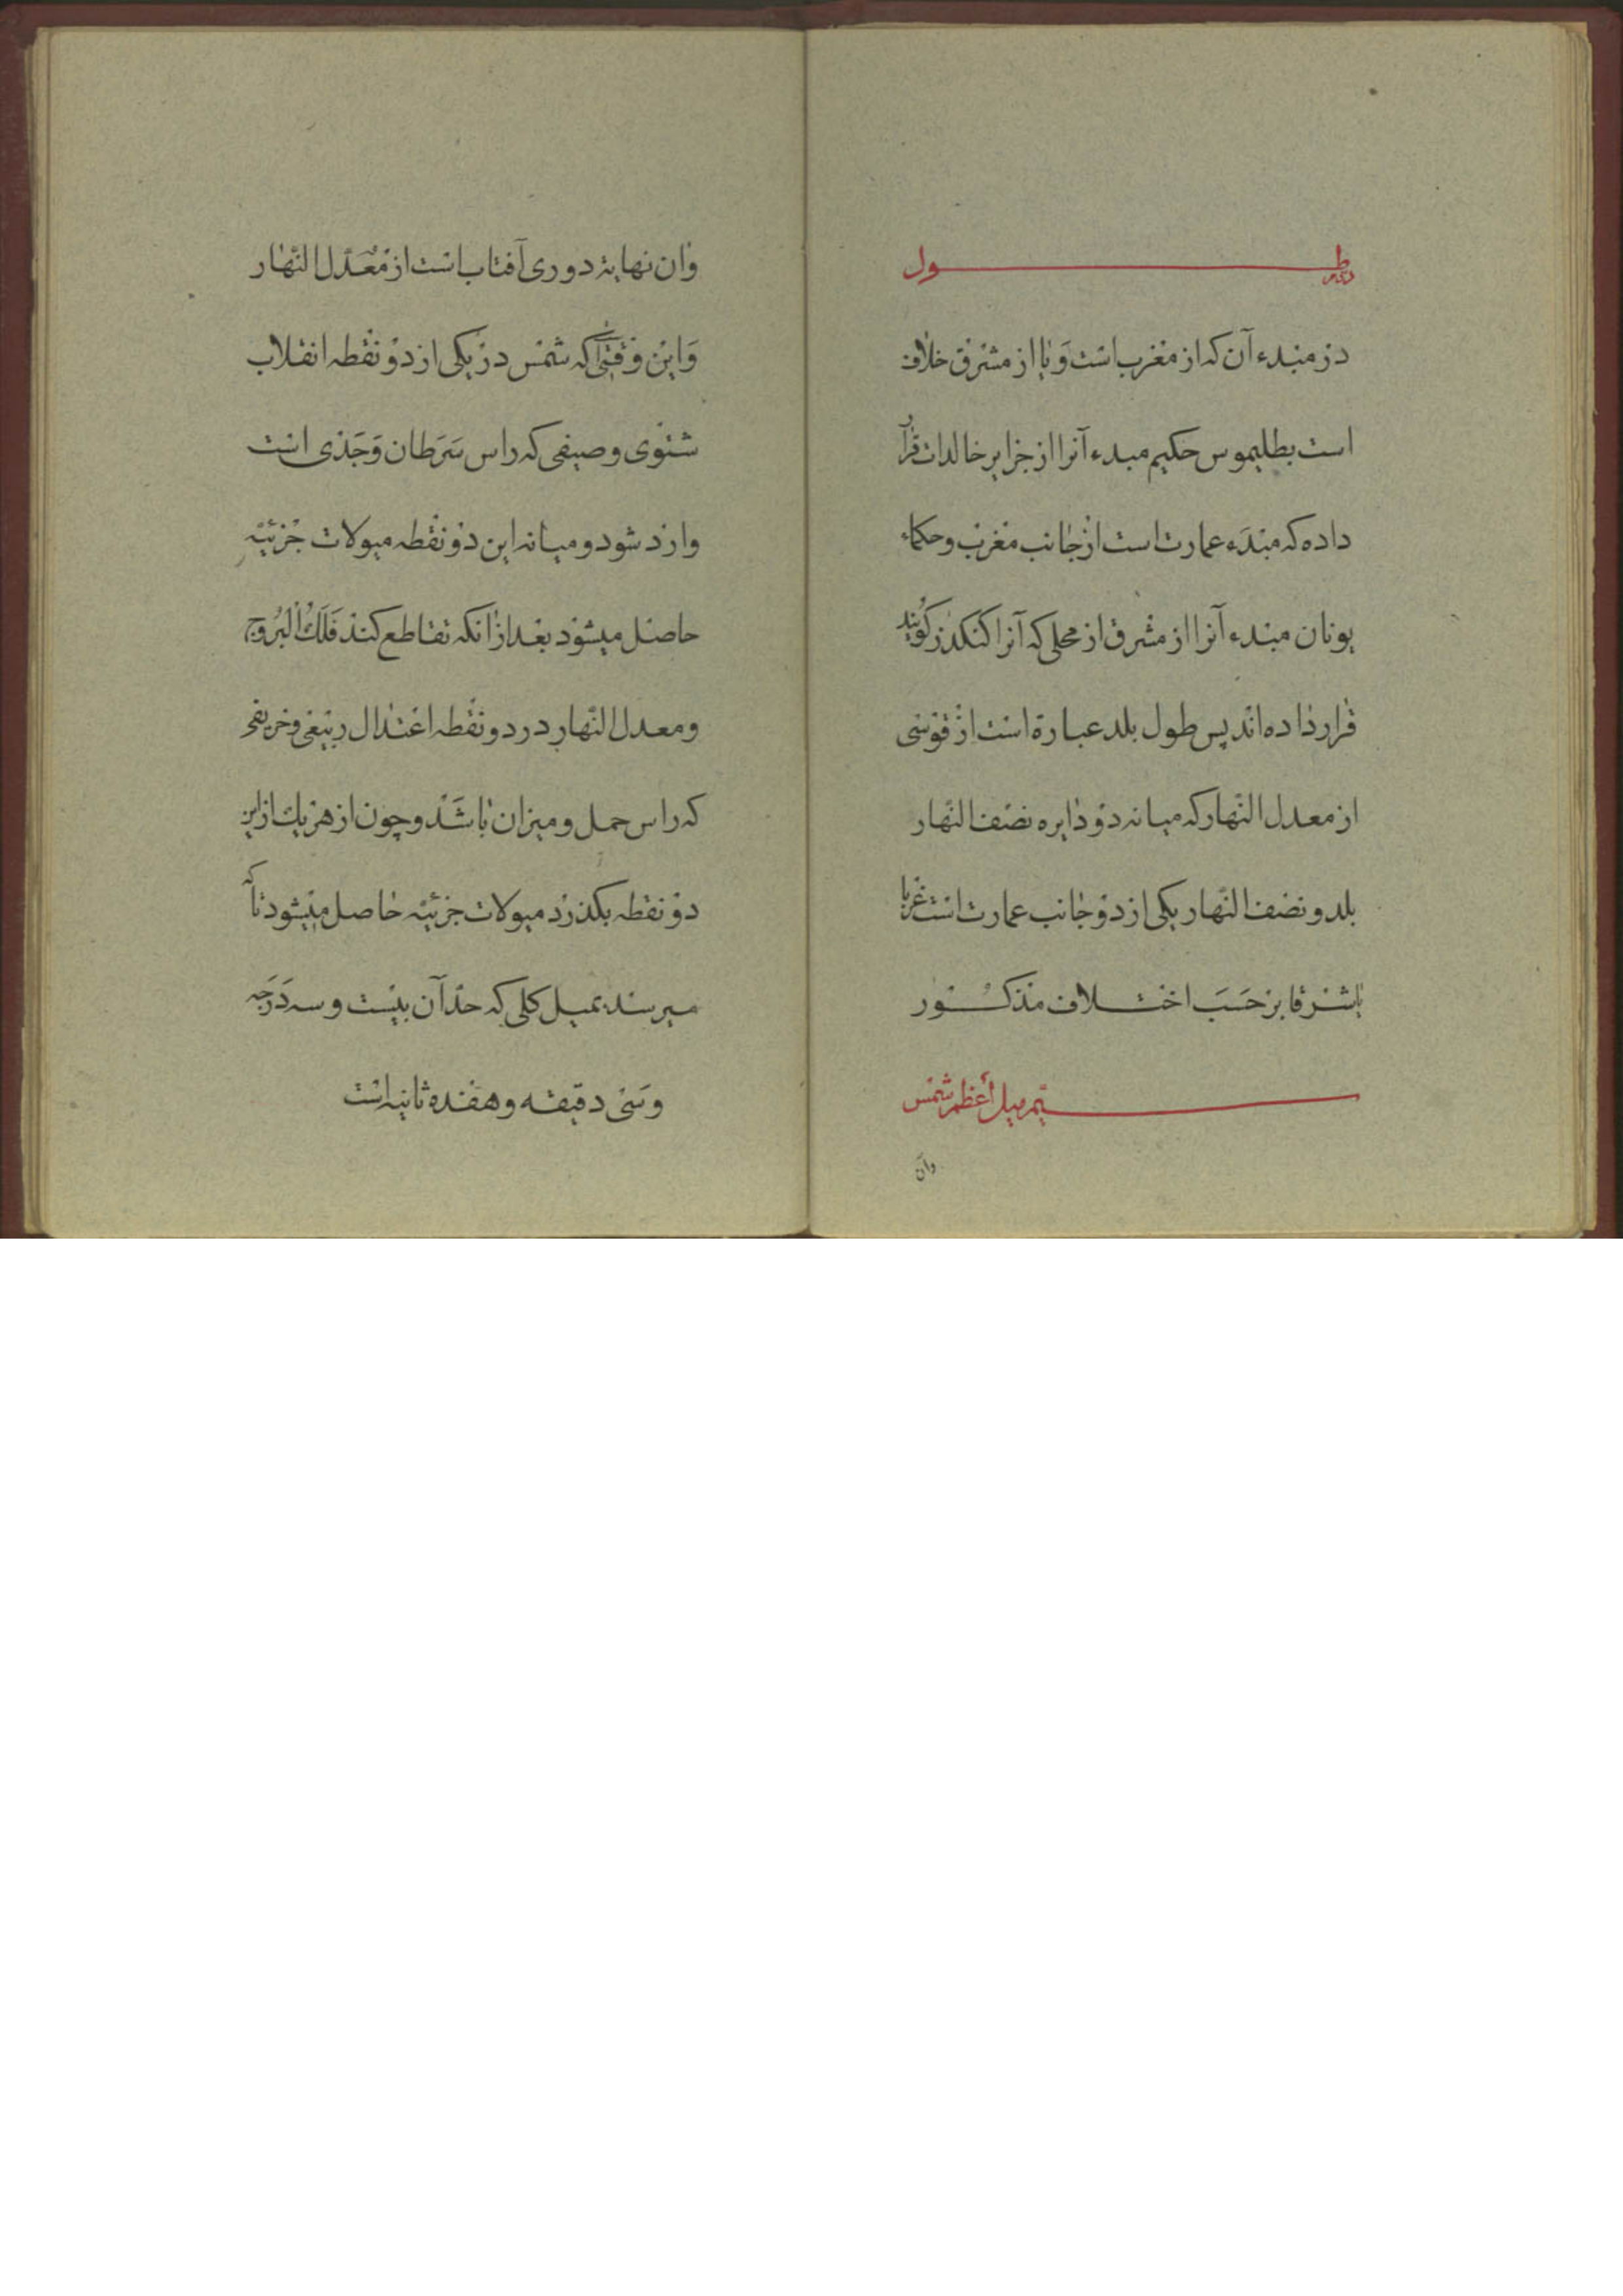 طول
در مبدء آن که از مغرب است و یا از مشرق خلاف
است بطلیموس حکیم مبدء آنرا از جزایر خالدات قرار
داده که مبدء عمارت است از جانب مغرب و حکماء
یونان مبدء آنرا از مشرق از محلی که آنرا کنکدز کویند
قرار داده اند پس طول بلد عبارة است از قوسی
از معدل النّهار که میانه دو دایره نصف النّهار
بلد و نصف النّهار یکی از دو جانب عمارت است غربا
یا شرقا بر حَسَب اختلاف مذکور
میل أعظم شمس
وآن
وان نهایة دوری آفتاب است از مُعَدّل النّهار
وَاین وقتی است که شمس در یکی از دو نقطه انقلاب
شتوی و صیفی که راس سَرَطان وَجَدی است
وارد شود و میانه این دو نقطه میولات جزئیّه
حاصل میشود بعد از انکه تقاطع کند فَلَكُ الْبُروج
و معدل النّهار در دو نقطه اعتدال ربیعی و خریفی
که راس حمل و میزان باشَد و چون از هر یك از این
دو نقطه بکذرد میولات جزئیّه حاصل میشود تا که
میرسند بمیل کلی که حدّ آن بیست و سه دَرَجه
و سَی دقیقه و هفده ثانیه است